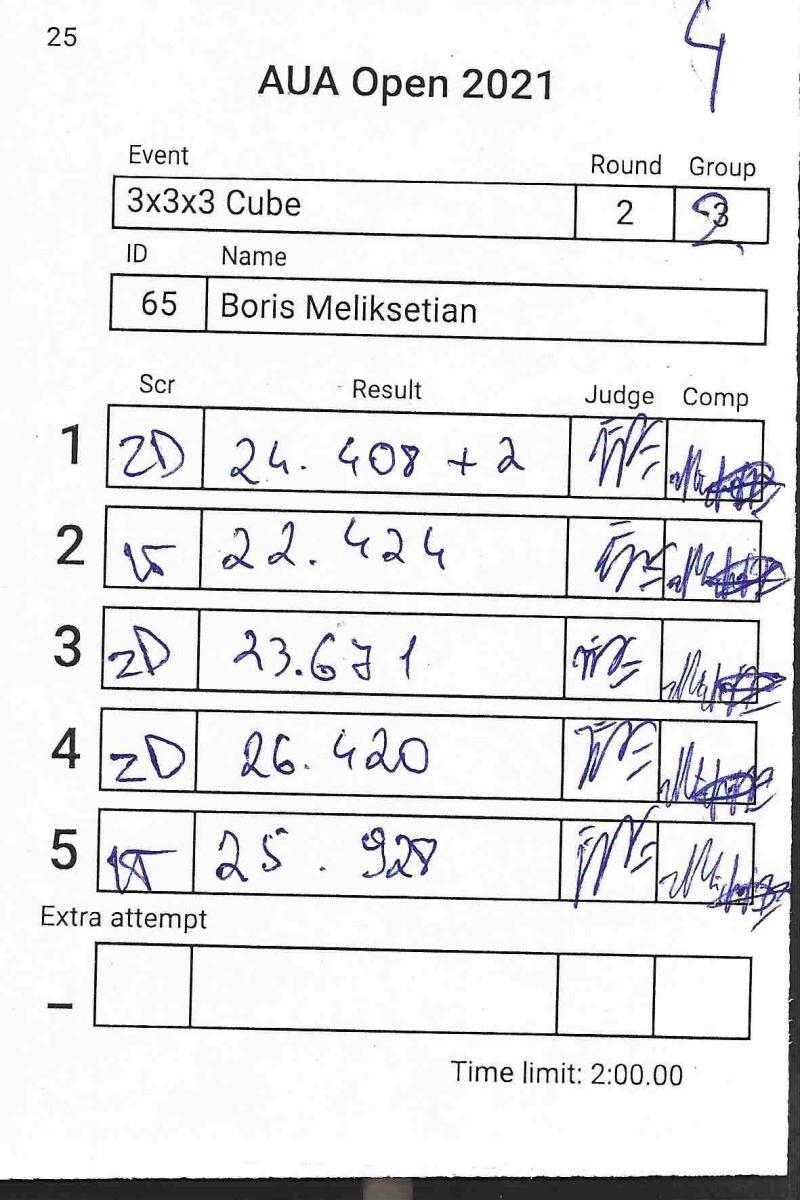 25
4
AUA Open 2021
Event Round Group
3x3x3 Cube 2 3 2
ID Name
65 Boris Meliksetian
Scr Result Judge Comp
1 ZD 24.408 + 2
2 22.424
3 ZD 23.671
4 ZD 26.420
5 25.928
Extra attempt
–
Time limit: 2:00.00